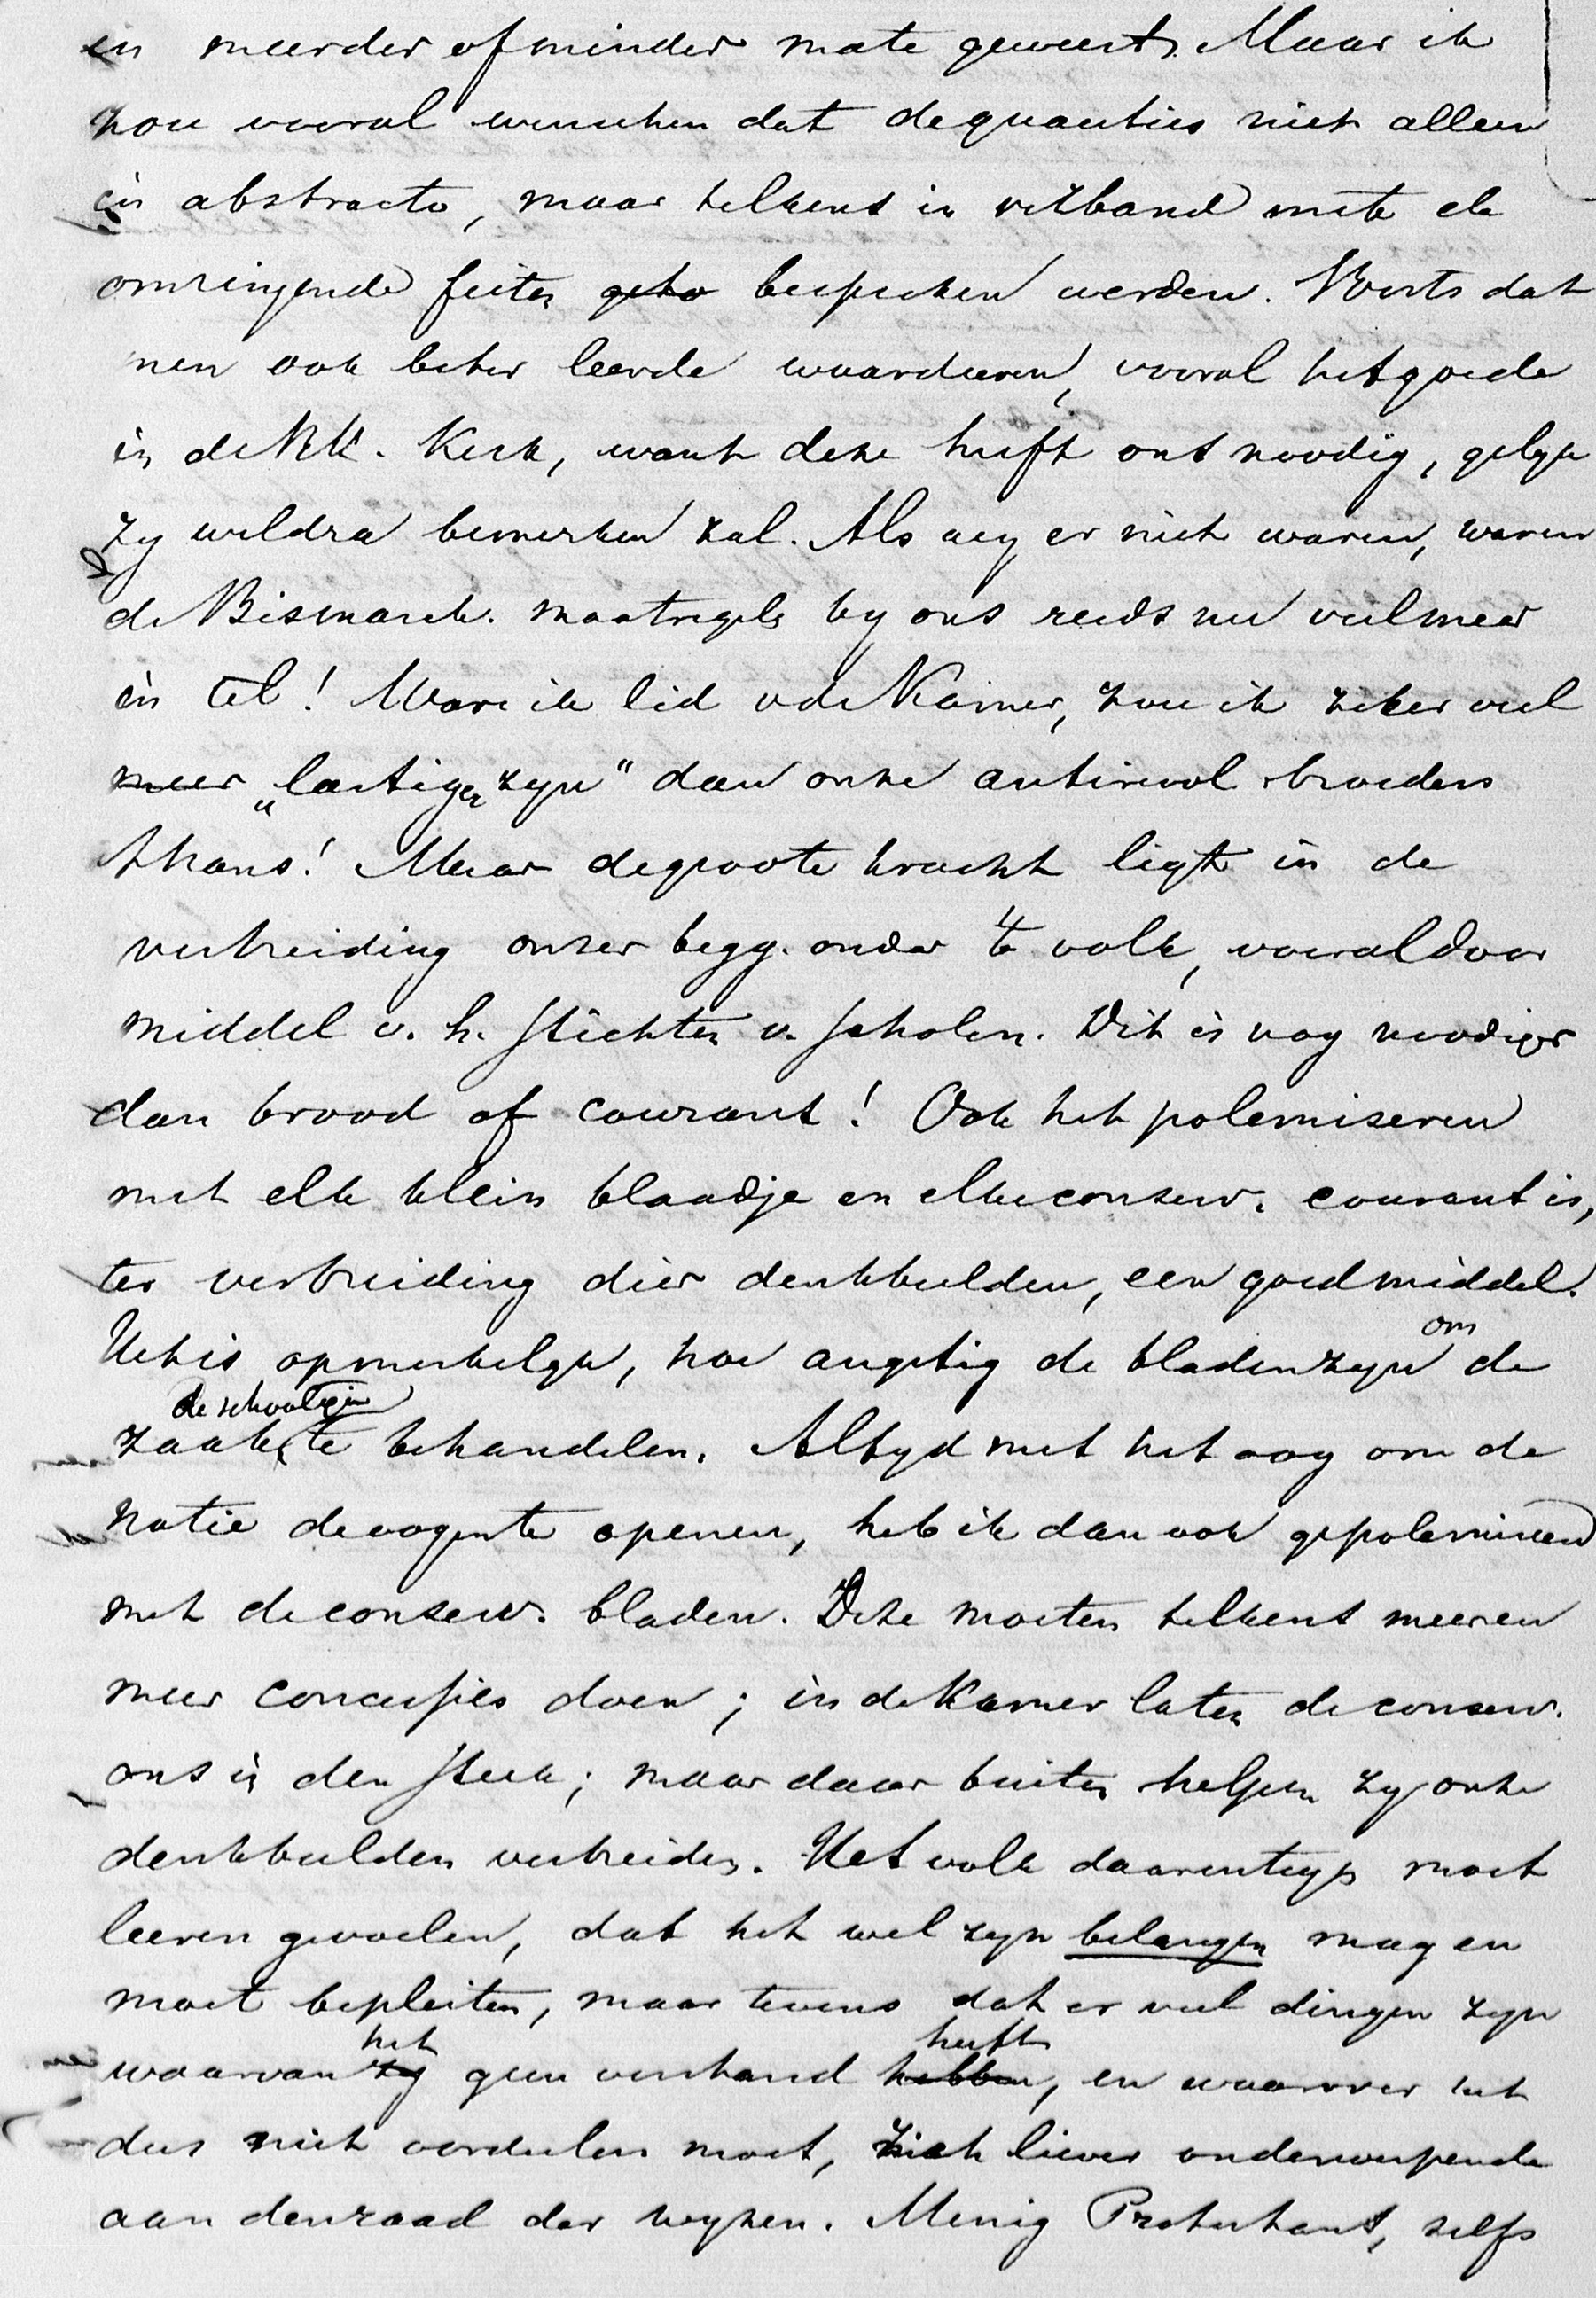 in meerder of minder mate geweest. Maar ik
zou vooral wenschen dat de quaesties niet alleen
in abstracto, maar telkens in verband met de
omringende feiten geho besproken werden. Voorts dat
men ook beter leerde waardeeren, vooral het goede
in de RK. Kerk, want deze heeft ons noodig, gelyk
zy weldra bemerken zal. Als wy er niet waren, waren
de Bismarck. maatregels by ons reeds nu veel meer
in tel! Ware ik lid v de Kamer, zou ik zeker veel
meer „lastiger zyn" dan onze antirevol. broeders
thans! Maar de groote kracht ligt in de
verbreiding onzer begg. onder 't volk, vooral door
middel v. h. stichten v. scholen. Dit is nog noodiger
dan brood of courant! Ook het polemiseren
met elk klein blaadje en elke conserv. courant is,
ter verbreiding dier denkbeelden, een goed middel.
Het is opmerkelyk, hoe angstig de bladen zyn om de
de schoolstryd
zaak te behandelen. Altyd met het oog om de
natie de oogen te openen, heb ik dan ook gepolemiseerd
met de conserv. bladen. Deze moeten telkens meer en
meer concessies doen; in de Kamer laten de conserv.
ons in den steek; maar daar buiten helpen zy onze
denkbeelden verbreiden. Het volk daarentegen moet
leeren gevoelen, dat het wel zyn belangen mag en
moet bepleiten, maar tevens dat er veel dingen zyn
het heeft
waarvan zy geen verstand hebben, en waarover het
dus niet oordeelen moet, zich liever onderwerpende
aan den raad der wyzen. Menig Protestant, zelfs